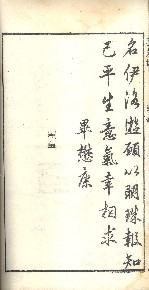 名伊洛遊願以明珠報知
己平生意氣幸相求
畢懋康